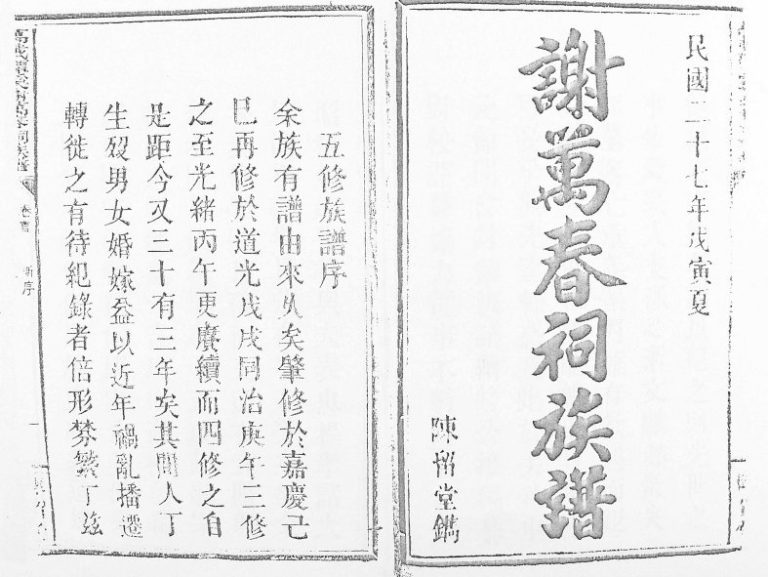 民國二十七年戊寅夏
謝萬春祠族譜
陳留堂鐫
五修族譜序
余族有譜由來久矣肇修於嘉慶己
巳再修於道光戊戌同治庚午三修
之至光緒丙午更賡續而四修之自
是距今又三十有三年矣其間人丁
生殁男女婚嫁益以近年禍亂播遷
轉徙之有待紀錄者倍形棼繁丁茲
新序